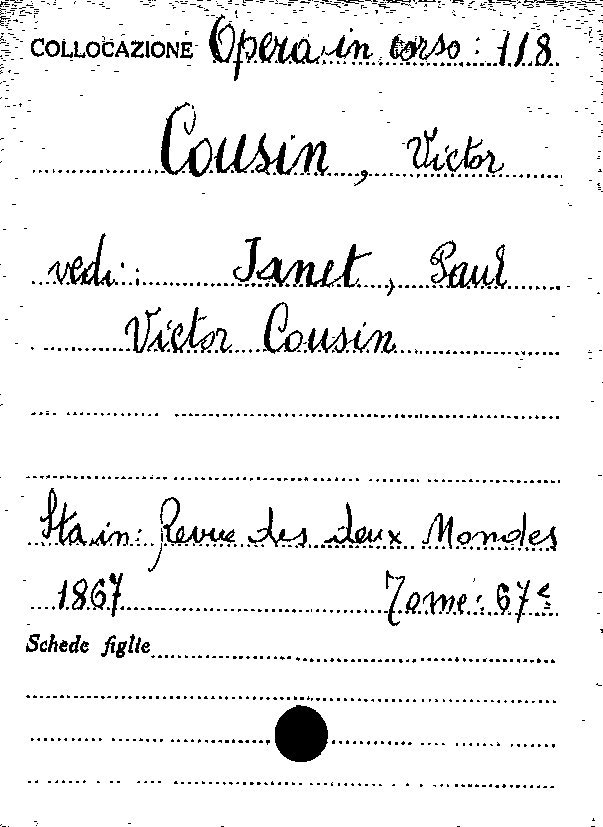 COLLOCAZIONE Opera in corso: 118
Cousin, Victor
vedi: Janet, Paul
Victor Cousin
Sta in: Revue des deux Mondes
1867 Tome: 67e
Schede figlie